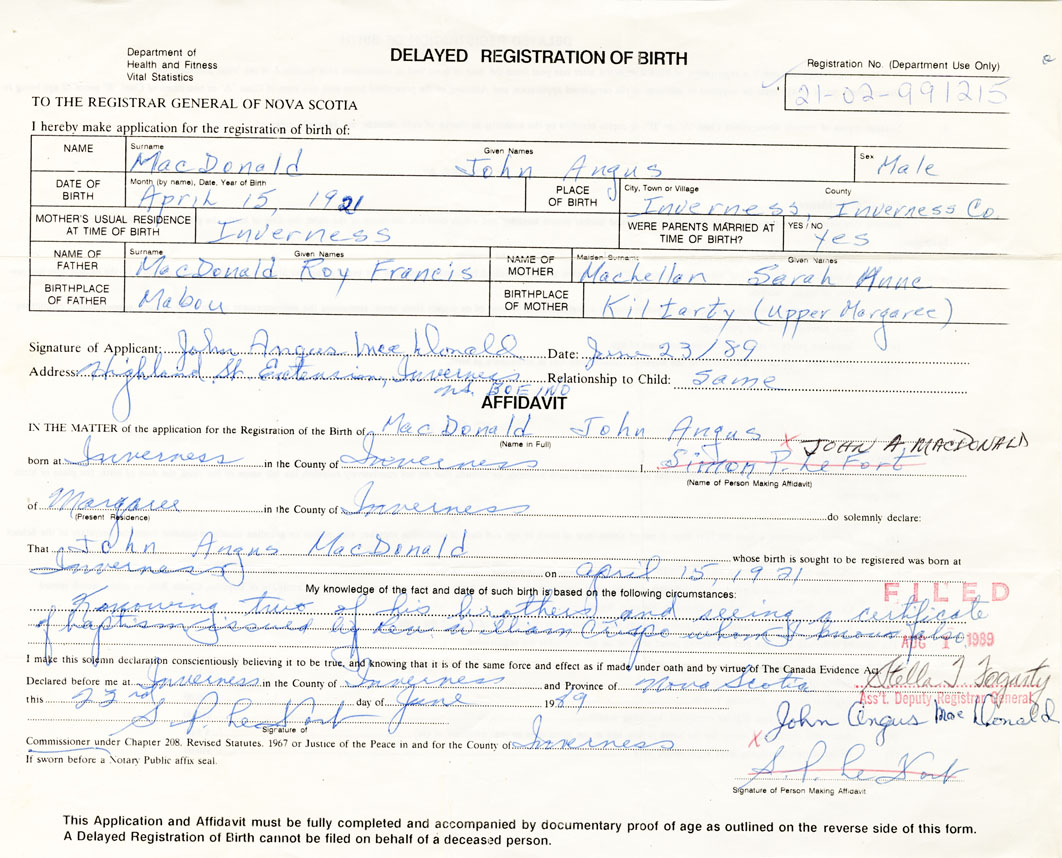 Department of
Health and Fitness
Vital Statistics
DELAYED REGISTRATION OF BIRTH
Registration No. (Department Use Only)
21-02-991215
TO THE REGISTRAR GENERAL OF NOVA SCOTIA
I hereby make application for the registration of birth of:
NAME Surname Given Names Sex
MacDonald John Angus Male
DATE OF BIRTH Month (by name), Date, Year of Birth PLACE OF BIRTH City, Town or Village County
April 15, 1921 Inverness, Inverness Co.
MOTHER'S USUAL RESIDENCE AT TIME OF BIRTH Inverness WERE PARENTS MARRIED AT TIME OF BIRTH? YES / NO Yes
NAME OF FATHER Surname Given Names NAME OF MOTHER Maiden Surname Given Names
MacDonald Roy Francis MacLellan Sarah Anne
BIRTHPLACE OF FATHER Mabou BIRTHPLACE OF MOTHER Kiltarty (Upper Margaree)
Signature of Applicant: John Angus MacDonald Date: June 23/89
Address: Highland St Extension, Inverness Relationship to Child: Same
n.s. BOE 1N0
AFFIDAVIT
IN THE MATTER of the application for the Registration of the Birth of MacDonald John Angus
(Name in Full) x JOHN A. MACDONALD
born at Inverness in the County of Inverness I, Simon P. LeFort
(Name of Person Making Affidavit)
of Margaree in the County of Inverness do solemnly declare:
(Present Residence)
That John Angus MacDonald whose birth is sought to be registered was born at
Inverness on April 15, 1921
My knowledge of the fact and date of such birth is based on the following circumstances:
FILED
Knowing two of his brothers and seeing a certificate
of baptism issued by Rev. William Crispo whom I know also
AUG 1 1989
I make this solemn declaration conscientiously believing it to be true, and knowing that it is of the same force and effect as if made under oath and by virtue of The Canada Evidence Act
Stella T Fogarty
Declared before me at Inverness in the County of Inverness and Province of Nova Scotia
Ass't. Deputy Registrar General
this 23rd day of June 1989
S. P. LeFort
Signature of
x John Angus MacDonald
Commissioner under Chapter 208. Revised Statutes. 1967 or Justice of the Peace in and for the County of Inverness
If sworn before a Notary Public affix seal.
S. P. LeFort
Signature of Person Making Affidavit
This Application and Affidavit must be fully completed and accompanied by documentary proof of age as outlined on the reverse side of this form.
A Delayed Registration of Birth cannot be filed on behalf of a deceased person.